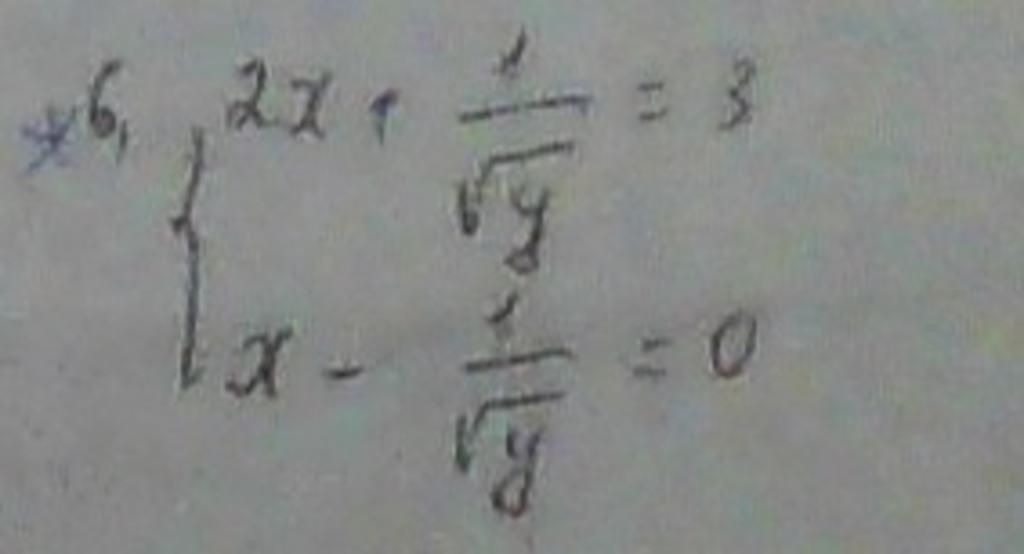 *6, 2x + 1/√y = 3
x - 1/√y = 0